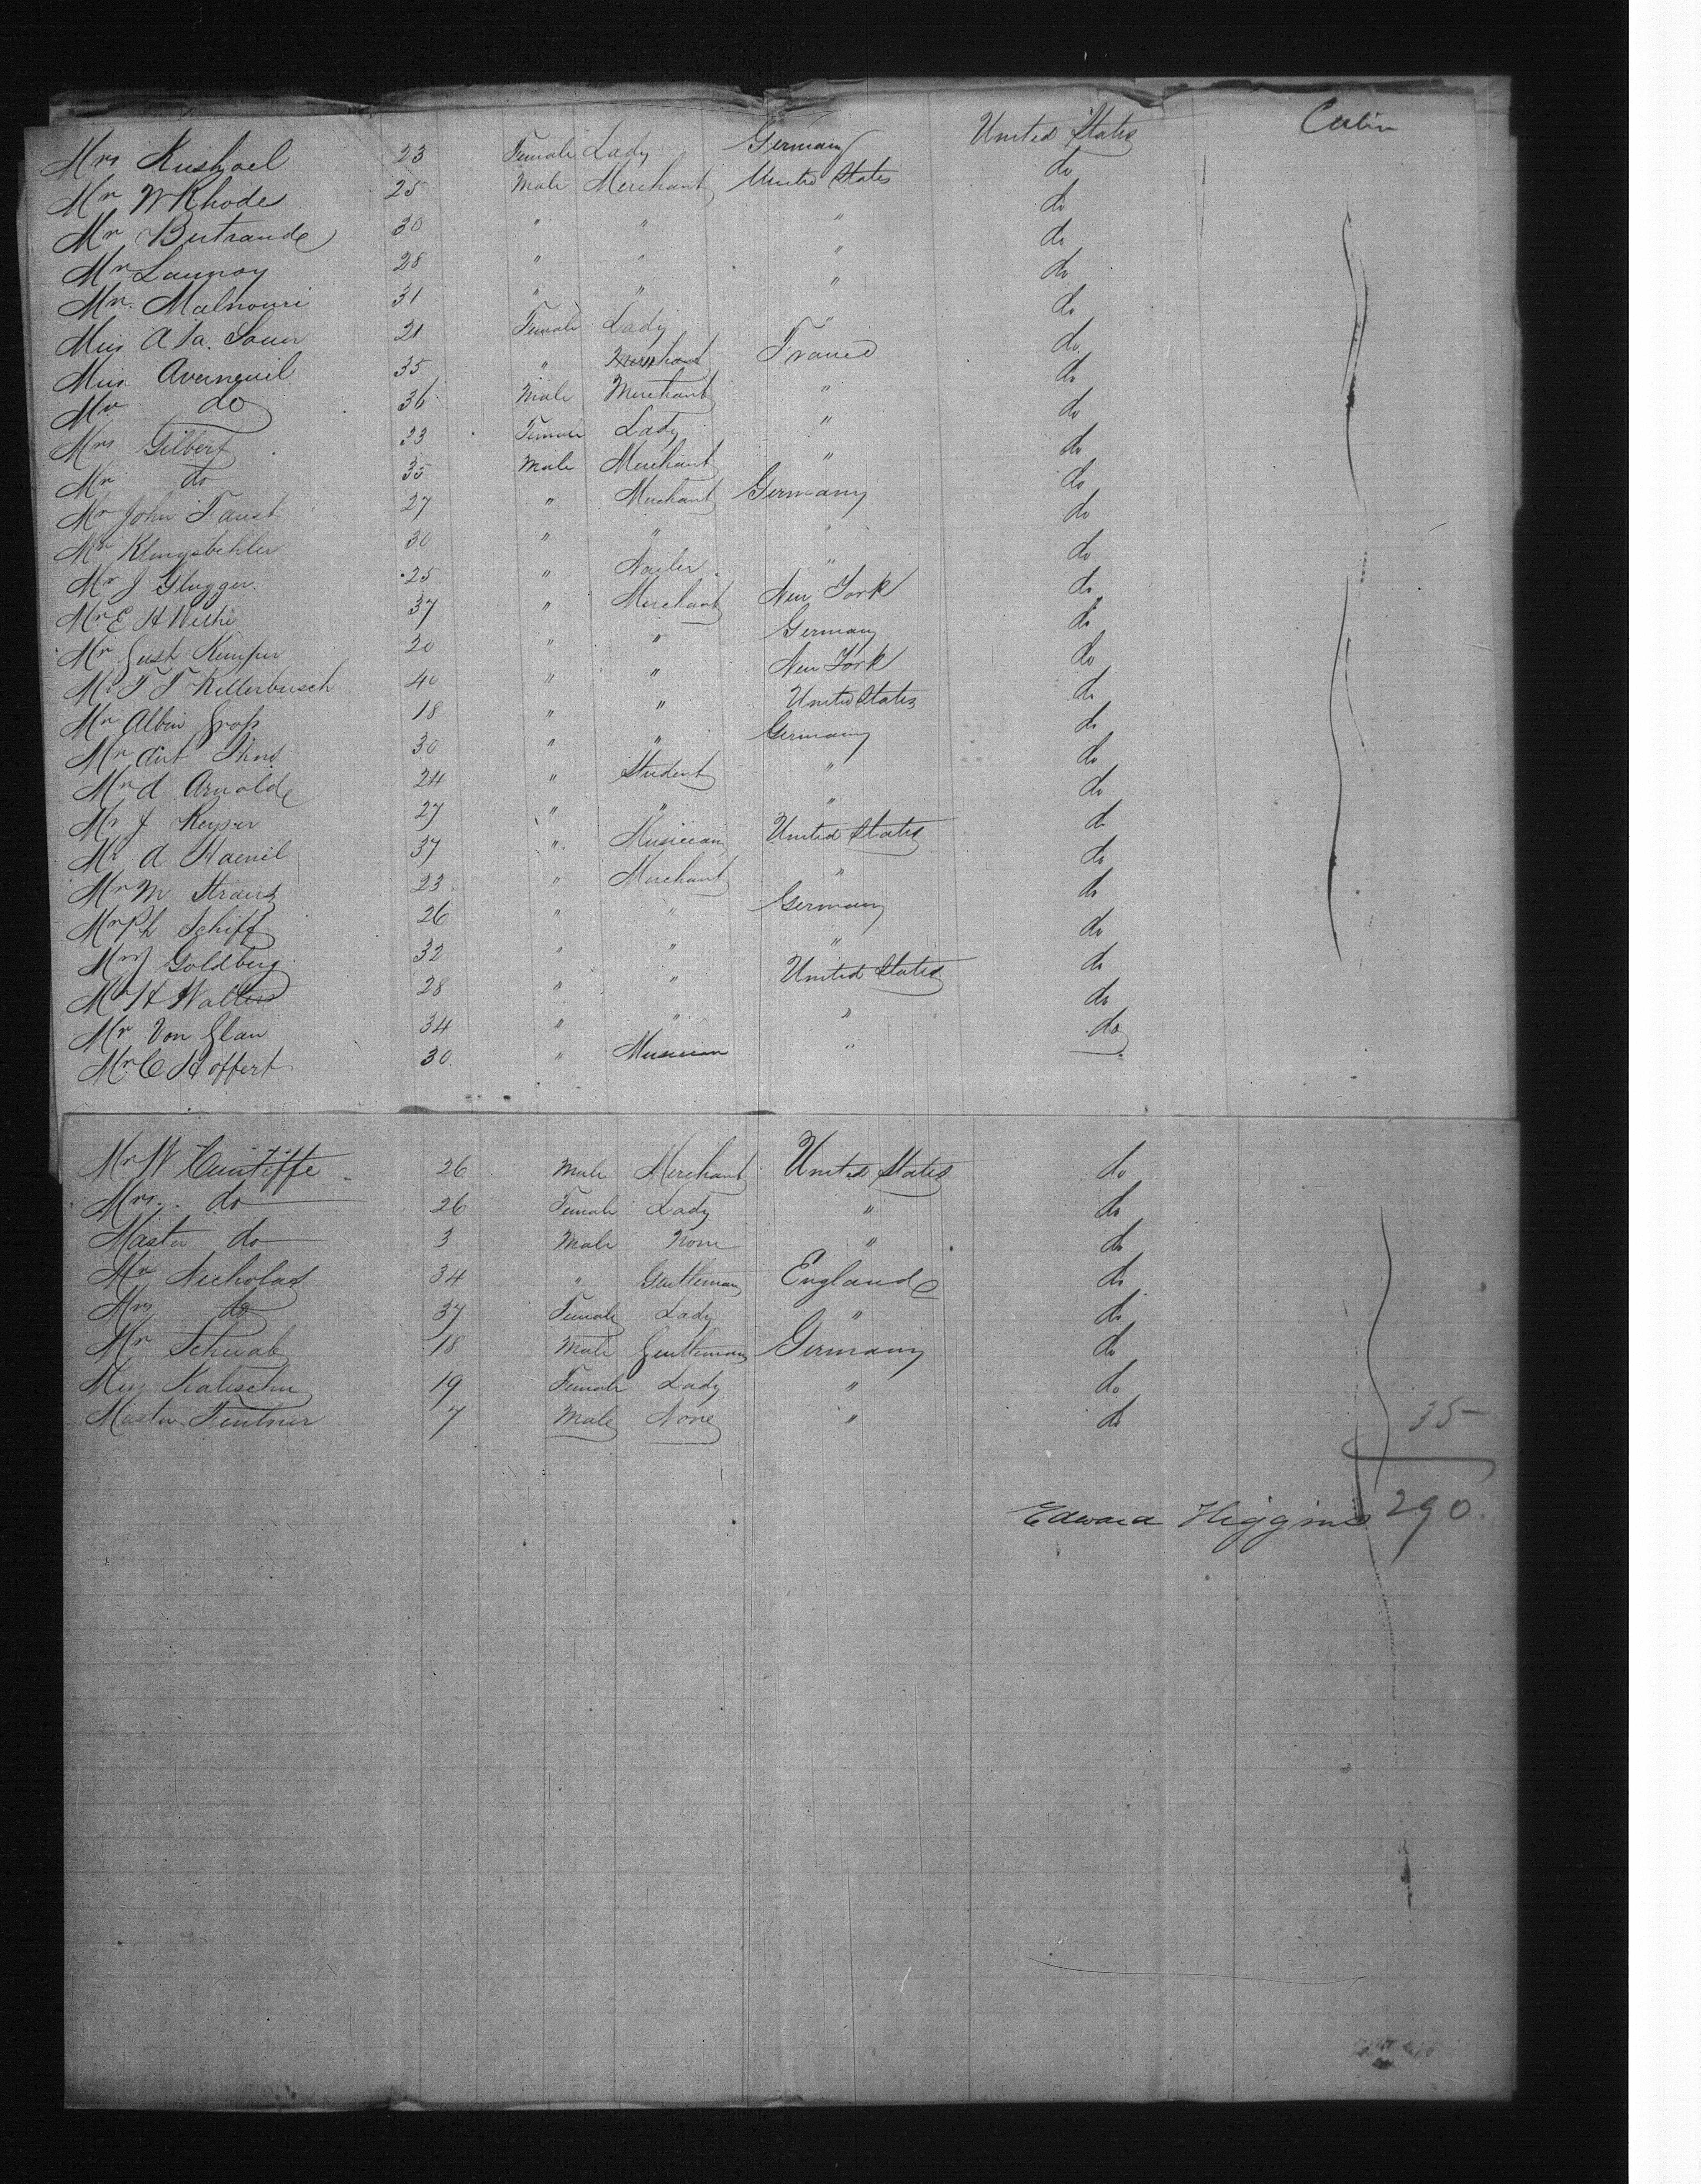 Mrs Kushael 23 Female Lady Germany United States Cabin
Mr W Rhode 25 Male Merchant United States do
Mr Bertrande 30 " " " do
Mr Launoy 28 " " " do
Mr. Malnouri 31 " " " do
Miss A La. Sauer 21 Female Lady " do
Miss Averneuil 35 " France do
Mr do 36 Male Merchant " do
Mrs Gilbert 23 Female Lady " do
Mr do 35 Male Merchant " do
Mr John Faust 27 " Merchant Germany do
Mr Klingsbehler 30 " " " do
Mr J Glugger 25 " Nailer " do
Mr E H Withe 37 " Merchant New York do
Mr Gust Kemper 20 " " Germany do
Mr F F Kellerbusch 40 " " New York do
Mr Albin Gross 18 " " United States do
Mr Ant 30 " " Germany do
Mr A Arnolde 24 " Student " do
Mr J Keyser 27 " " " do
Mr A Haenil 37 " Musician United States do
Mr M Strauss 23 " Merchant " do
Mr Ph Schiff 26 " " Germany do
Mr J Goldberg 32 " " " do
Mr H Walters 28 " " United States do
Mr Von Glan 34 " " " do
Mr C Hoffert 30 " Musician " do
Mr W Cuntiffe 26 Male Merchant United States do
Mrs. do 26 Female Lady " do
Master do 3 Male None " do
Mr Nicholas 34 " Gentleman England do
Mrs do 37 Female Lady " do
Mr Schwab 18 Male Gentleman Germany do
Miss Kalischer 19 Female Lady " do
Master Fentner 7 Male None " do
35
Edward Higgins 290